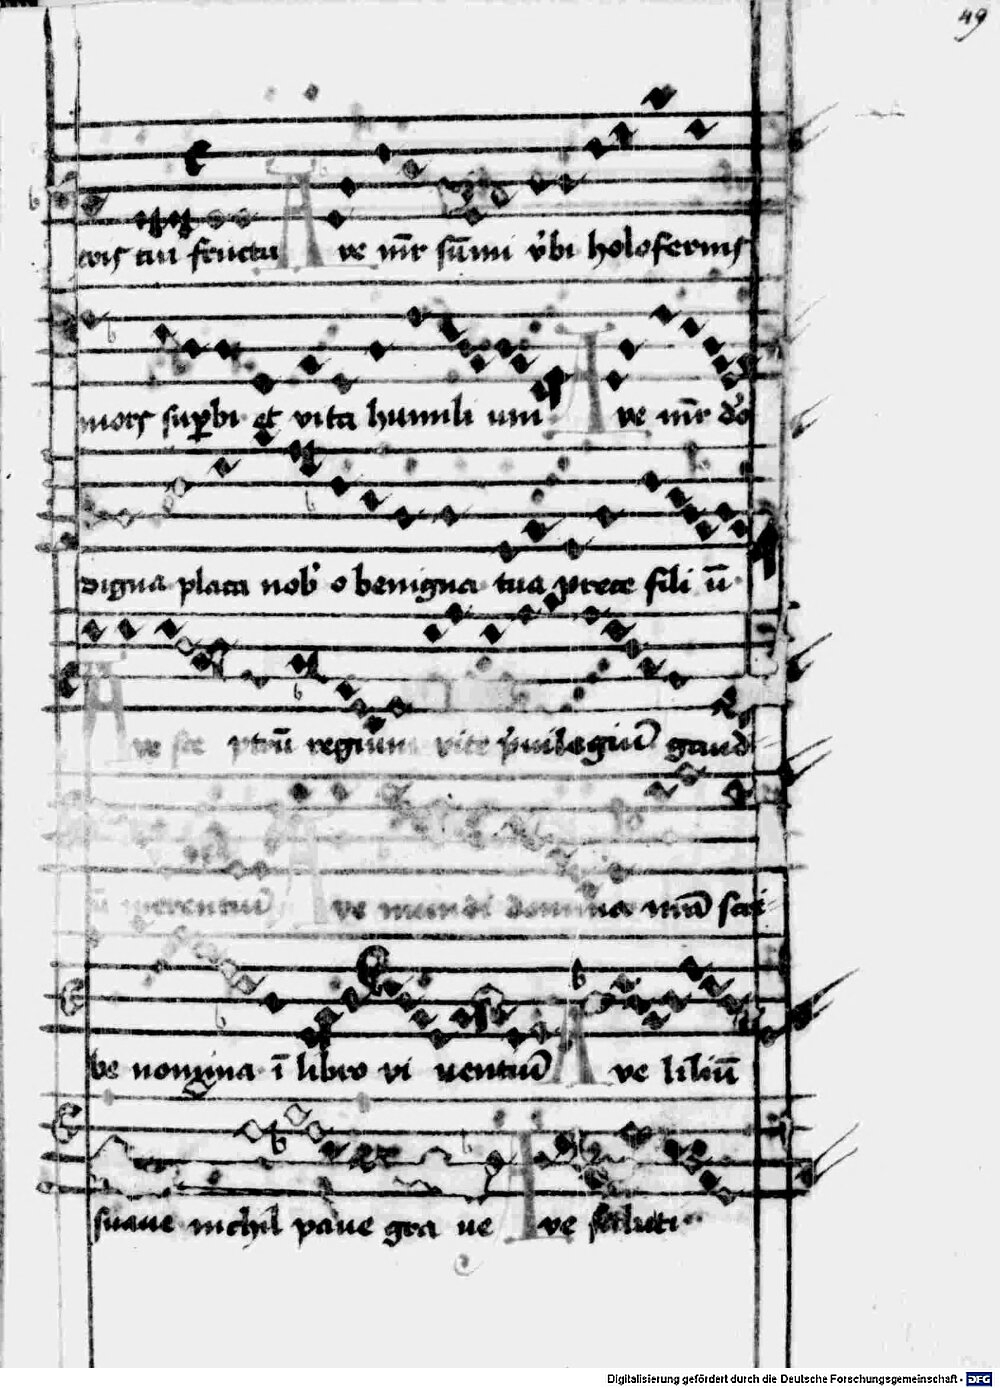 49
tris tui fructu Ave mr̄ sūmi v̾bi holofernis
mors suꝑbi et vita humili um Ave mr̄ do
digna placa nob̾ o benigna tua prece fili ū
Ave sce ptrū regium vite p̾uilegiū gaud
merentiū Ave mundi domina nrā scri
be nomina ī libro vi uentiū Ave liliū
suave nichil paue gra ue Ave saluti
Digitalisierung gefördert durch die Deutsche Forschungsgemeinschaft - DFG